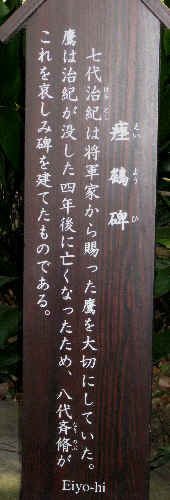 瘞鷂碑
えい よう ひ
七代治紀は将軍家から賜った鷹を大切にしていた。
はる とし
鷹は治紀が没した四年後に亡くなったため、八代斉脩が
なりのぶ
これを哀しみ碑を建てたものである。
Eiyo-hi